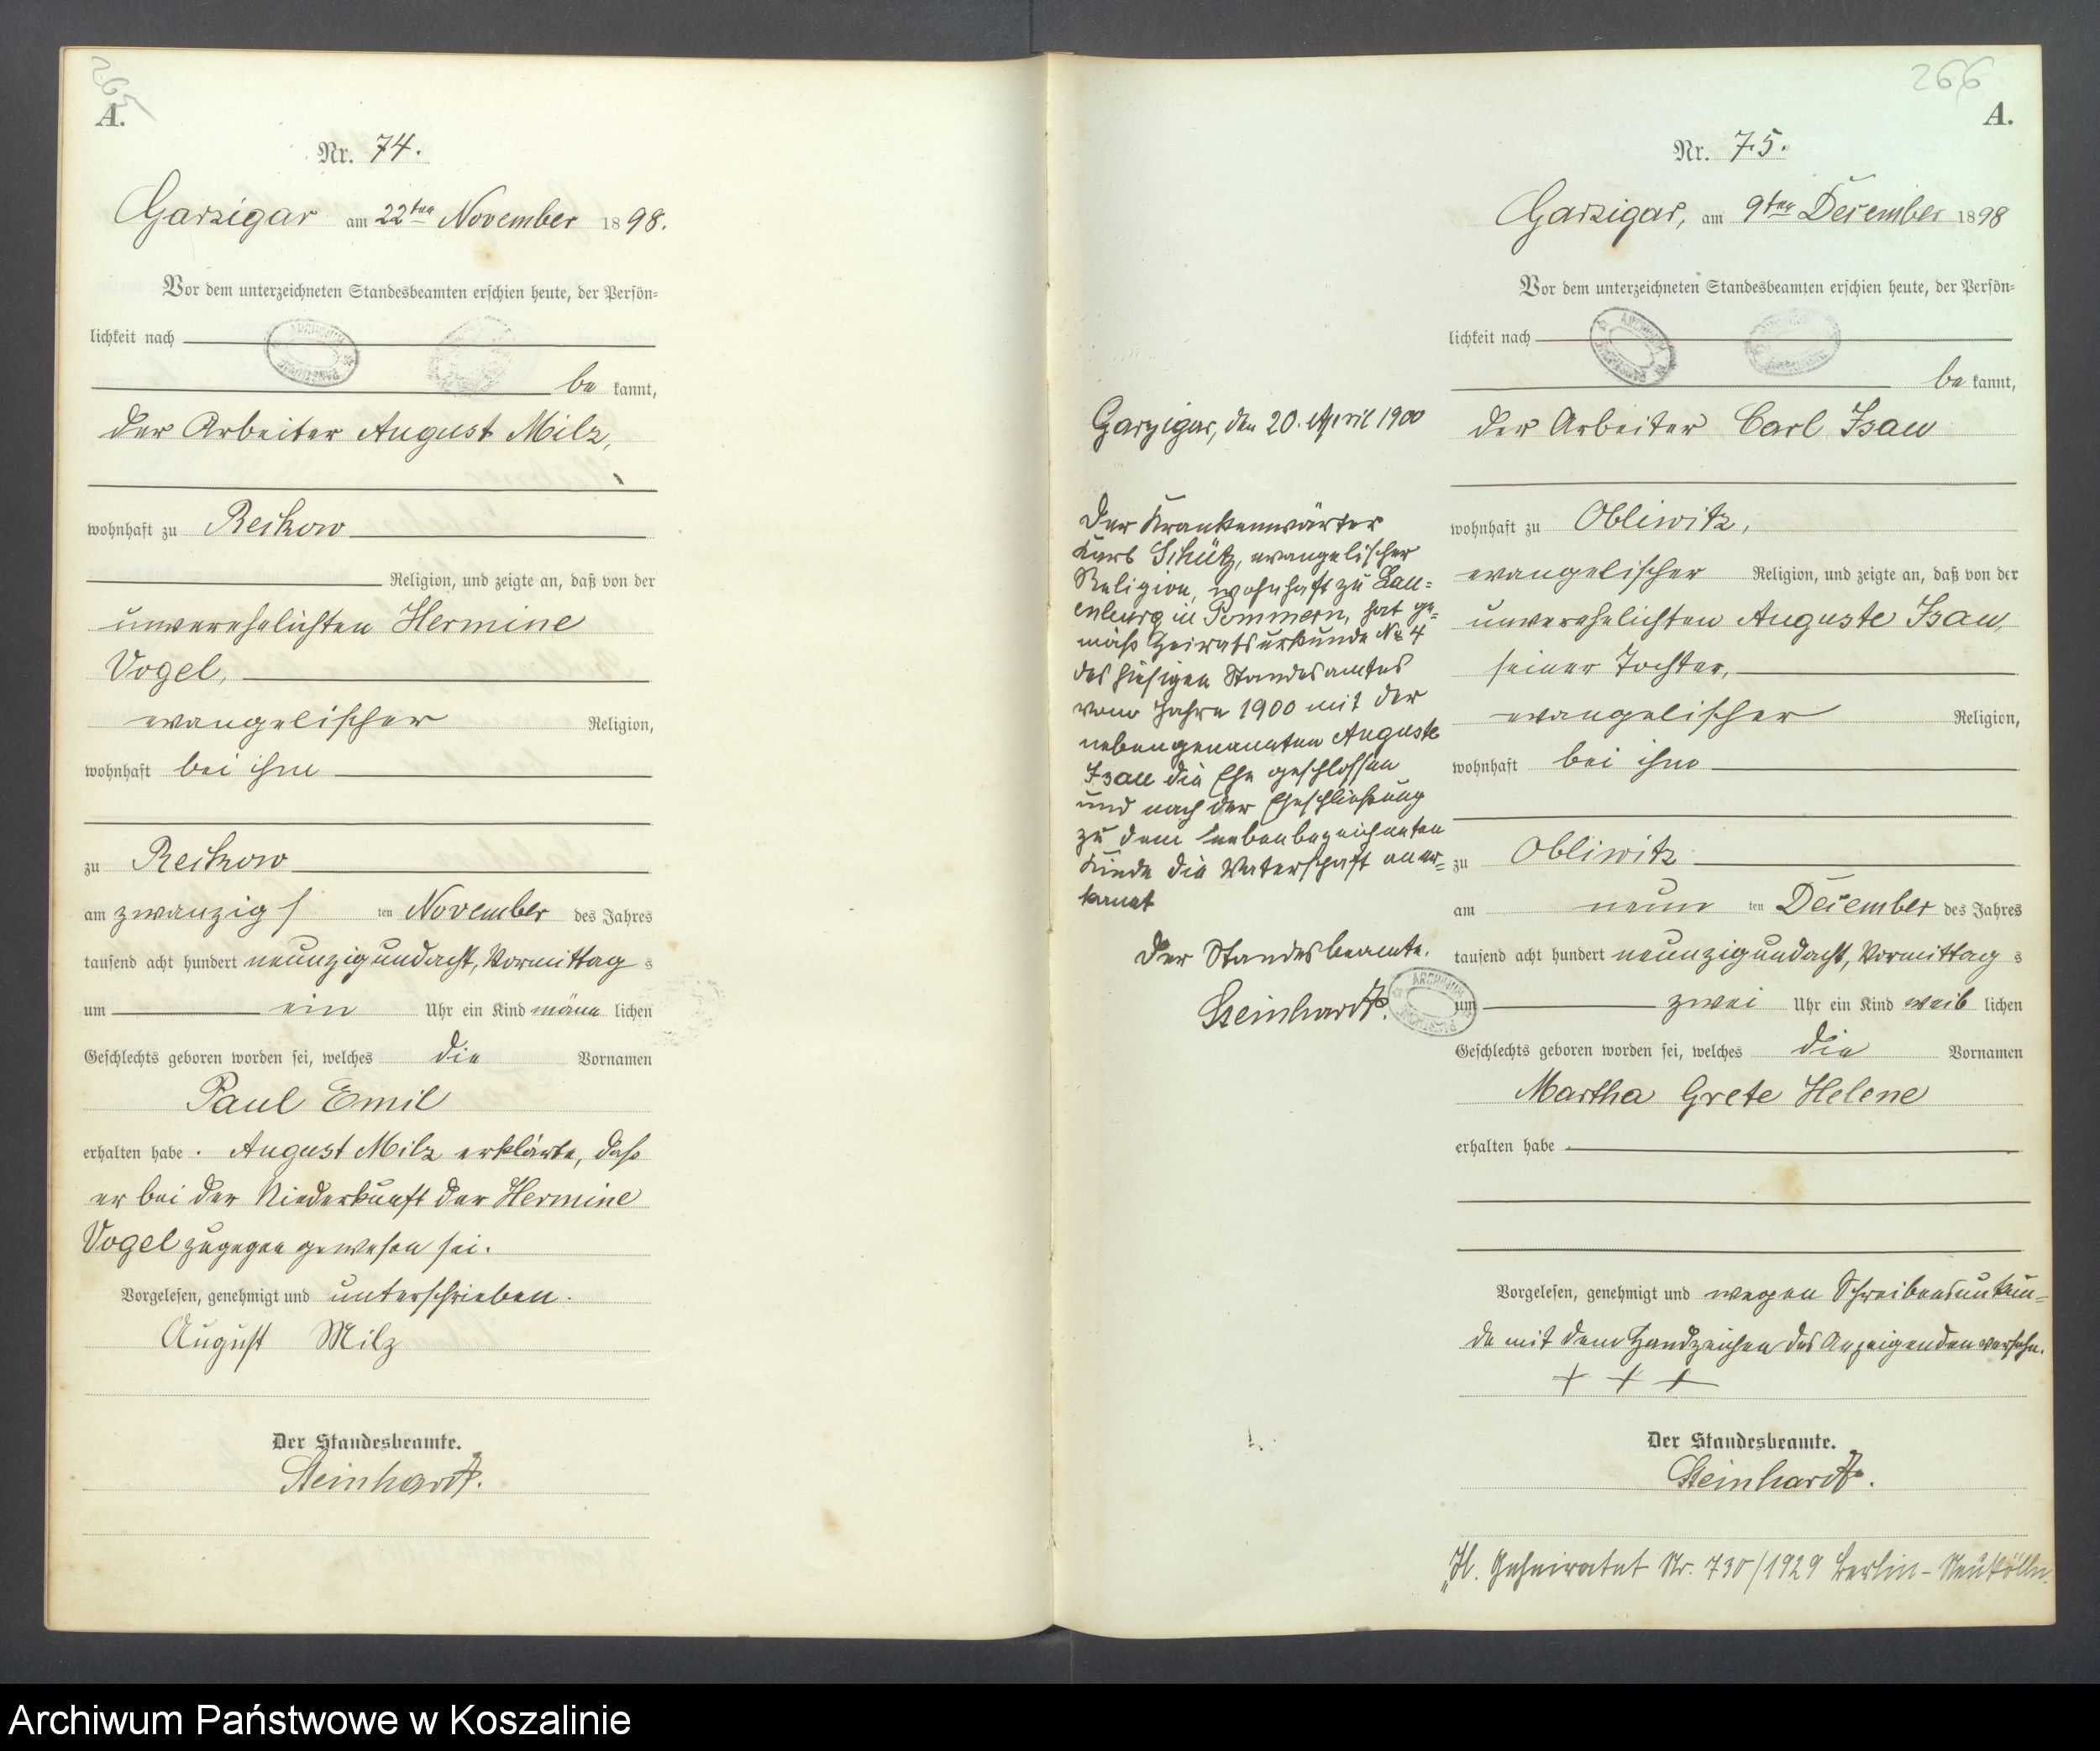 265
A.
Nr. 74.
Garzigar am 22ten November 1898.
Vor dem unterzeichneten Standesbeamten erschien heute, der Persön=
lichkeit nach
be kannt,
der Arbeiter August Milz,
wohnhaft zu Reckow
Religion, und zeigte an, daß von der
unverehelichten Hermine
Vogel,
evangelischer Religion,
wohnhaft bei ihm
zu Reckow
am zwanzigs ten November des Jahres
tausend acht hundert neunzigundacht, Vormittag s
um ein Uhr ein Kind männ lichen
Geschlechts geboren worden sei, welches die Vornamen
Paul Emil
erhalten habe. August Milz erklärte, daß
er bei der Niederkunft der Hermine
Vogel zugegen gewesen sei.
Vorgelesen, genehmigt und unterschrieben.
August Milz
Der Standesbeamte.
Steinhardt.
266
A.
Nr. 75.
Garzigar, am 9ten December 1898
Vor dem unterzeichneten Standesbeamten erschien heute, der Persön=
lichkeit nach
be kannt,
der Arbeiter Carl Izau
wohnhaft zu Obliwitz,
evangelischer Religion, und zeigte an, daß von der
unverehelichten Auguste Izau,
seiner Tochter,
evangelischer Religion,
wohnhaft bei ihm
zu Obliwitz
am neun ten December des Jahres
tausend acht hundert neunzigundacht, Vormittag s
um zwei Uhr ein Kind weib lichen
Geschlechts geboren worden sei, welches die Vornamen
Martha Grete Helene
erhalten habe
Vorgelesen, genehmigt und wegen Schreibensunkun=
de mit dem Handzeichen des Anzeigenden versehn.
+ + +
Der Standesbeamte.
Steinhardt.
Geheiratet Nr. 730/1929 Berlin-Neukölln.
Garzigar, den 20. April 1900
Der Krankenwärter
Schütz, evangelischer
Religion, wohnhaft zu Lau=
enburg in Pommern, hat ge=
mäß Heiratsurkunde No 4
des hiesigen Standesamtes
vom Jahre 1900 mit der
nebengenannten Auguste
Izau die Ehe geschlossen
und nach der Eheschließung
zu dem nebenbezeichneten
Kinde die Vaterschaft aner=
kannt
Der Standesbeamte.
Steinhardt.
Archiwum Państwowe w Koszalinie